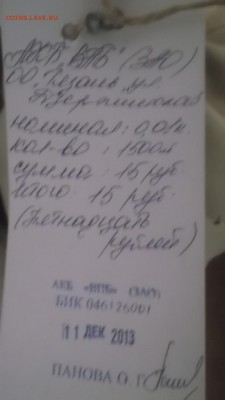 АКБ "ВПБ" (ЗАО)
ОО "Рязань", ул.
Дзержинская
номинал: 0,01к.
кол-во : 1500 м
сумма : 15 руб
Итого: 15 руб.
(Пятнадцать
рублей)
АКБ «ВПБ» (ЗАО)
БИК 046126001
11 ДЕК 2013
ПАНОВА О. Г.